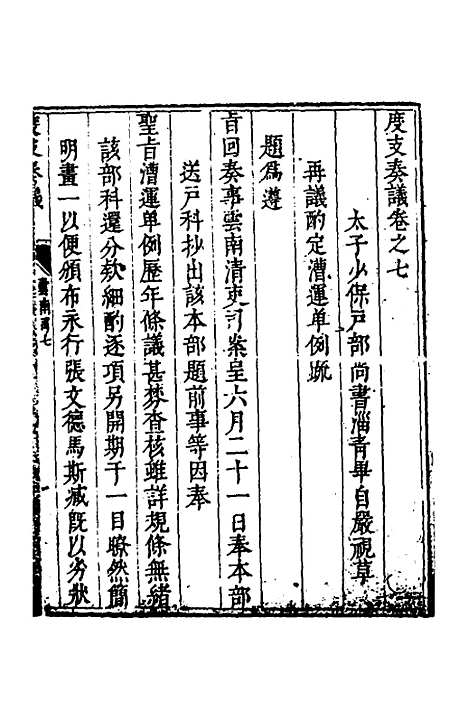 度支奏議卷之七
太子少保戸部尚書淄青畢自嚴視草
再議酌定漕運单例疏
題爲遵
旨回奏事雲南清吏司案呈六月二十一日奉本部
送戸科抄出該本部題前事等因奉
聖旨漕運单例歷年條議甚棼查核雖詳規條無緒
該部科還分欵細酌逐項另開期于一目瞭然簡
明畫一以便頒布永行張文德馬斯臧旣以劣狀
度支奏議
雲南司七